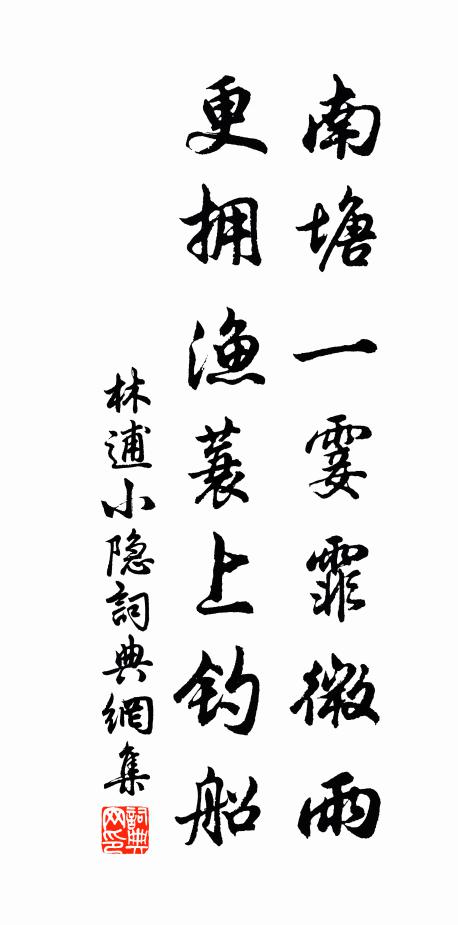 南塘一霎霏微雨
更拥漁蓑上钓船
林逋小隐詞典網集
詞典网印